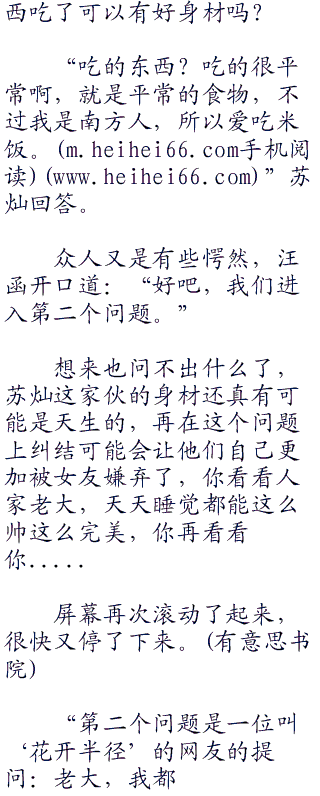 西吃了可以有好身材吗？
“吃的东西？吃的很平
常啊，就是平常的食物，不
过我是南方人，所以爱吃米
饭。(m.heihei66.com手机阅
读)(www.heihei66.com)”苏
灿回答。
众人又是有些愕然，汪
函开口道：“好吧，我们进
入第二个问题。”
想来也问不出什么了，
苏灿这家伙的身材还真有可
能是天生的，再在这个问题
上纠结可能会让他们自己更
加被女友嫌弃了，你看看人
家老大，天天睡觉都能这么
帅这么完美，你再看看
你.....
屏幕再次滚动了起来，
很快又停了下来。(有意思书
院)
“第二个问题是一位叫
‘花开半径’的网友的提
问：老大，我都